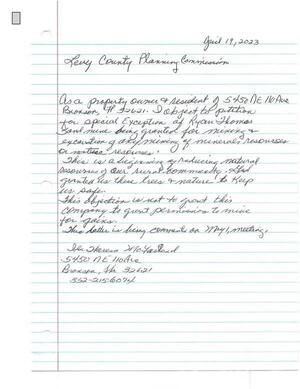 April 19, 2023
Levy County Planning Commission
As a property owner & resident of 5450 NE 110 Ave
Bronson, Fl 32621. I object to petition
for special Exception of Ryan Thomas
sand mine being granted for mining &
excavation of any mining of mineral resources
or natural resources.
This is a beginning of reducing natural
resources of our rural community. God
granted us these trees & nature to keep
us safe.
This objection is not to grant this
company to grant permission to mine
for gains.
This letter is being comment on May 1, meeting.
Theresa
5450 NE 110 Ave
Bronson, Fla 32621
352-215-6074